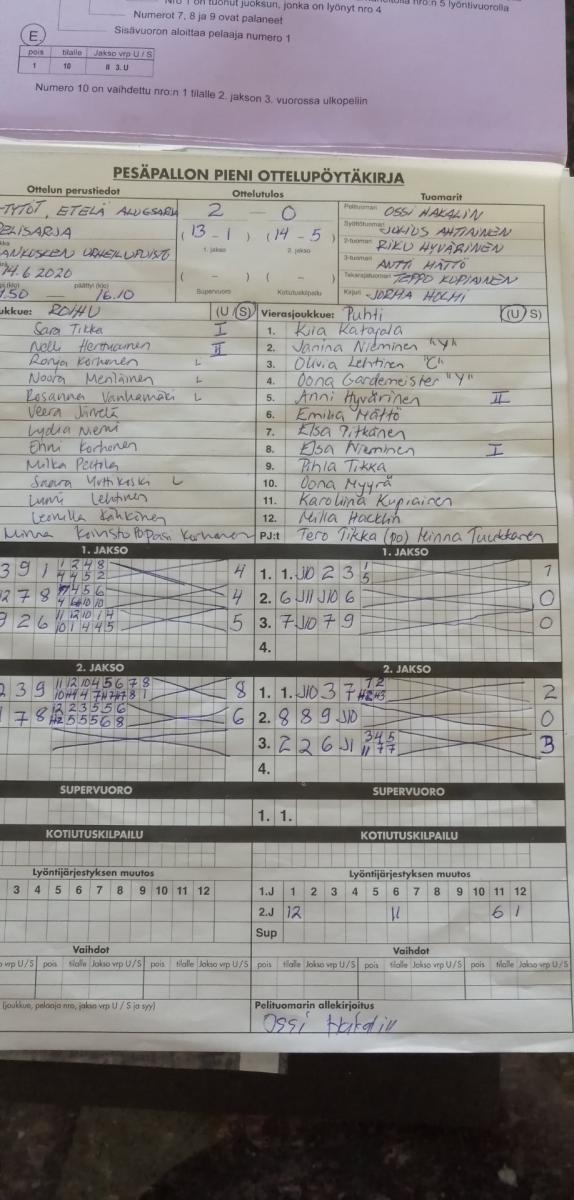 Nro 1 on tuonut juoksun, jonka on lyönyt nro 4
nro:n 5 lyöntivuorolla
Numerot 7, 8 ja 9 ovat palaneet
Sisävuoron aloittaa pelaaja numero 1
E.
pois tilalle Jakso vrp U / S
1 10 II 3. U
Numero 10 on vaihdettu nro:n 1 tilalle 2. jakson 3. vuorossa ulkopeliin
PESÄPALLON PIENI OTTELUPÖYTÄKIRJA
Ottelun perustiedot Ottelutulos Tuomarit
-TYTÖT, ETELÄ ALUESARJA 2 – 0 Pelituomari OSSI HAKALIN
(13 - 1) (14 - 5) Syöttötuomari JULIUS AHTIAINEN
1. jakso 2. jakso 2-tuomari RIKU HYVÄRINEN
URHEILUPUISTO 3-tuomari ANTTI MÄTTÖ
14.6.2020 ( – ) ( – ) Takarajatuomari TEPPO KUPIAINEN
.50 päättyi (klo) — 16.10 Supervuoro Kotiutuskilpailu Kirjuri JORMA HELMI
ukkue: ROIHU (U S) Vierasjoukkue: Puhti (U S)
Sara Tikka I 1. Kiia Katajala
Nelli Herttuainen II 2. Janina Nieminen "Y"
Ronja Korhonen L 3. Olivia Lehtinen "C"
Noora Menläinen L 4. Oona Gardemeister "Y"
Rosanna Vanhamäki L 5. Anni Hyvärinen II
Veera Järvelä 6. Emilia Mättö
Lydia Niemi 7. Elsa Pitkänen
Enni Korhonen 8. Elsa Nieminen I
Milka Peltila 9. Pihla Tikka
L 10. Oona Myyrä
Lumi Lehtinen 11. Karoliina Kupiainen
Leonilla Kähkönen 12. Milla Hacklin
Minna Korhonen PJ:t Tero Tikka (po) Minna Tuukkanen
1. JAKSO 1. JAKSO
3 9 1 1 2 4 8 4 1. 1. J10 2 3 1 1
4 4 5 2 5
2 7 8 7 4 5 6 4 2. 6 J11 J10 6 0
4 6 10 10
9 2 6 11 12 10 1 4 5 3. 7 J10 7 9 0
10 1 4 4 5
4.
2. JAKSO 2. JAKSO
2 3 9 11 12 10 4 5 6 7 8 8 1. 1. J10 3 7 1 2 2
7 8 12 2 3 5 5 6 6 2. 8 8 9 J10 0
5 5 5 6 8
3. 2 2 6 J1 3 4 5 3
11 7 7
4.
SUPERVUORO SUPERVUORO
1. 1.
KOTIUTUSKILPAILU KOTIUTUSKILPAILU
Lyöntijärjestyksen muutos Lyöntijärjestyksen muutos
3 4 5 6 7 8 9 10 11 12 1.J 1 2 3 4 5 6 7 8 9 10 11 12
2.J 12 11 6 1
Sup
Vaihdot Vaihdot
o vrp U / S pois tilalle Jakso vrp U / S pois tilalle Jakso vrp U / S pois tilalle Jakso vrp U / S pois tilalle Jakso vrp U / S
(joukkue, pelaaja nro, jakso vrp U / S ja syy) Pelituomarin allekirjoitus
Ossi Hakalin